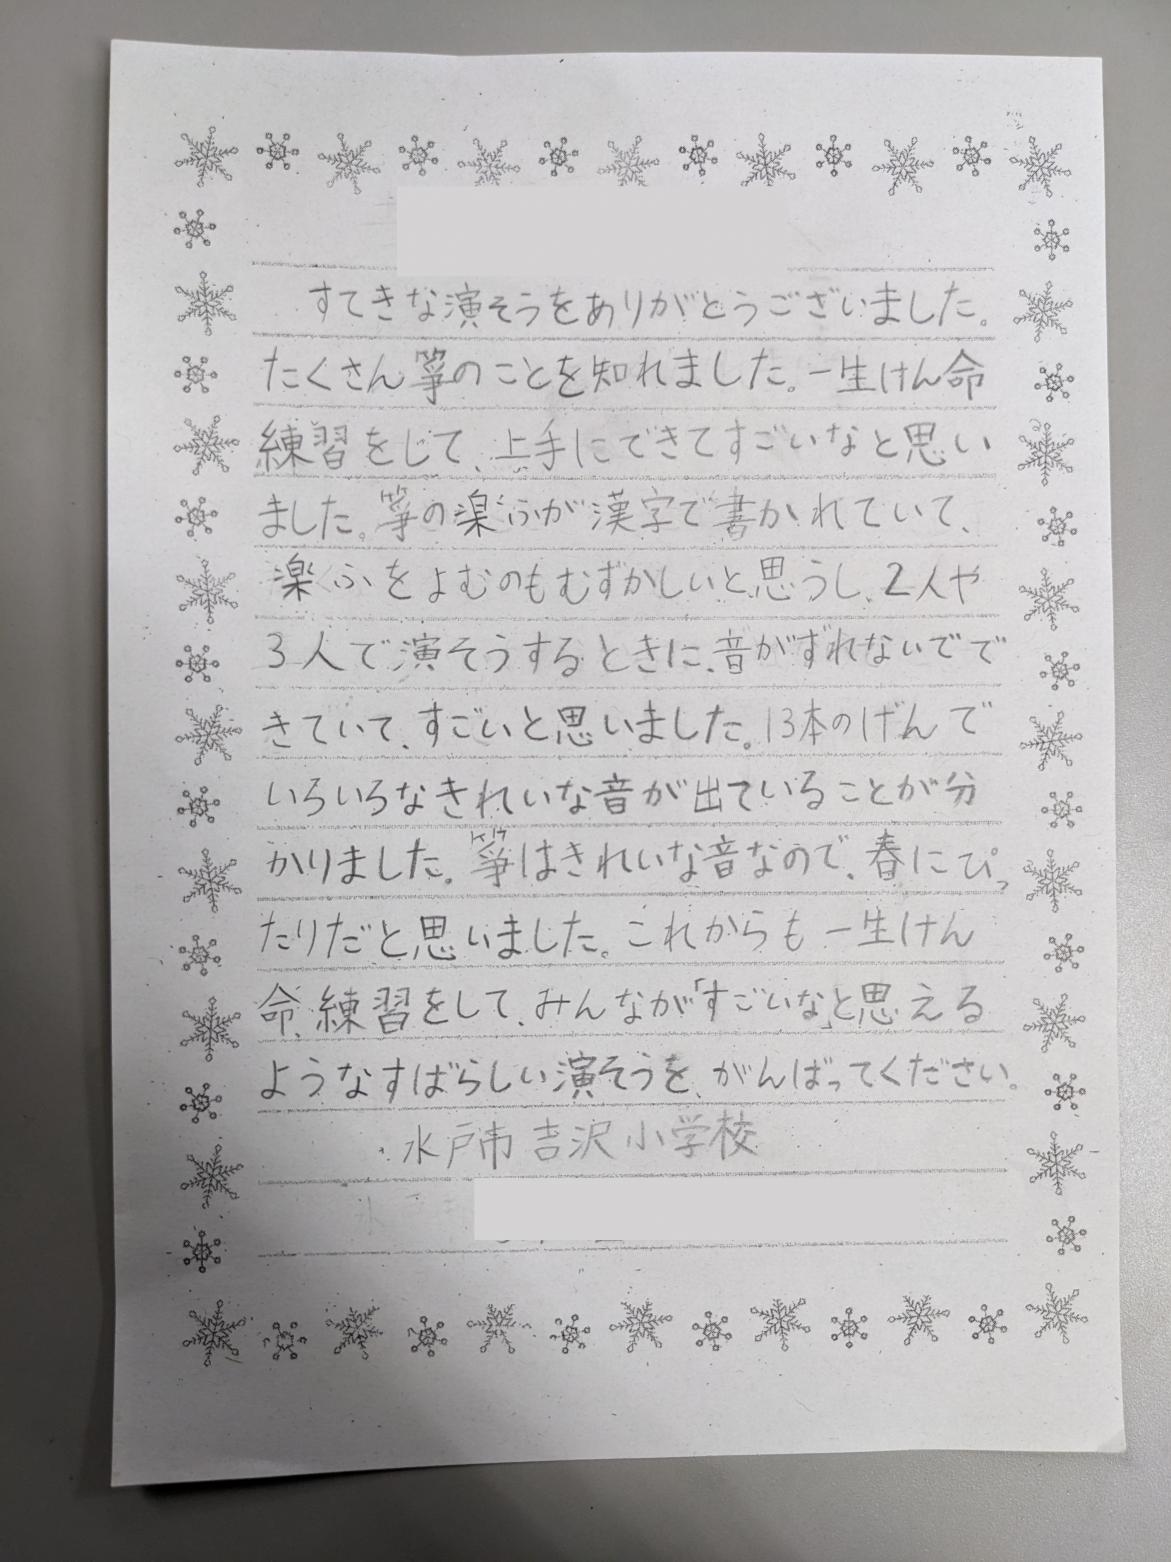 すてきな演そうをありがとうございました。
たくさん箏のことを知れました。一生けん命
練習をして、上手にできてすごいなと思い
ました。箏の楽ふが漢字で書かれていて、
楽ふをよむのもむずかしいと思うし、2人や
3人で演そうするときに、音がずれないでで
きていて、すごいと思いました。13本のげんで
いろいろなきれいな音が出ていることが分
かりました。箏はきれいな音なので、春にぴっ
たりだと思いました。これからも一生けん
命、練習をして、みんなが「すごいな」と思える
ようなすばらしい演そうを、がんばってください。
水戸市吉沢小学校